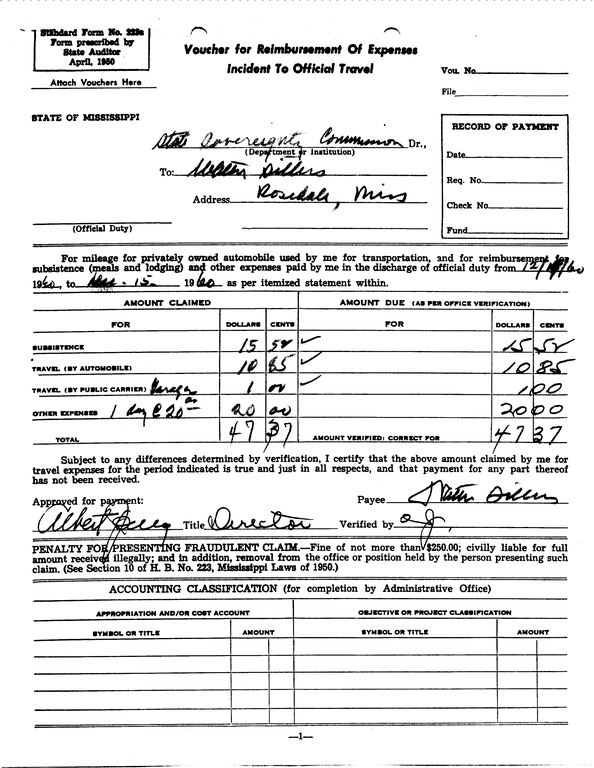 Standard Form No. 223a
Form prescribed by
State Auditor
April, 1950
Attach Vouchers Here
Voucher for Reimbursement Of Expenses
Incident To Official Travel
Vou. No.
File
STATE OF MISSISSIPPI
State Sovereignty Commission Dr.,
(Department or Institution)
To: Walter Sillers
Address Rosedale, Miss
(Official Duty)
RECORD OF PAYMENT
Date
Req. No.
Check No.
Fund
For mileage for privately owned automobile used by me for transportation, and for reimbursement for
subsistence (meals and lodging) and other expenses paid by me in the discharge of official duty from
1960, to 15 1960 as per itemized statement within.
AMOUNT CLAIMED AMOUNT DUE (AS PER OFFICE VERIFICATION)
FOR DOLLARS CENTS FOR DOLLARS CENTS
SUBSISTENCE 15 52 ✓ 15 52
TRAVEL (BY AUTOMOBILE) 10 85 ✓ 10 85
TRAVEL (BY PUBLIC CARRIER) Garage 1 00 ✓ 1 00
OTHER EXPENSES 1 day @ 20 00 20 00 20 00
TOTAL 47 37 AMOUNT VERIFIED: CORRECT FOR 47 37
Subject to any differences determined by verification, I certify that the above amount claimed by me for
travel expenses for the period indicated is true and just in all respects, and that payment for any part thereof
has not been received.
Approved for payment: Payee Walter Sillers
Albert Jones Title Director Verified by
PENALTY FOR PRESENTING FRAUDULENT CLAIM.—Fine of not more than $250.00; civilly liable for full
amount received illegally; and in addition, removal from the office or position held by the person presenting such
claim. (See Section 10 of H. B. No. 223, Mississippi Laws of 1950.)
ACCOUNTING CLASSIFICATION (for completion by Administrative Office)
APPROPRIATION AND/OR COST ACCOUNT OBJECTIVE OR PROJECT CLASSIFICATION
SYMBOL OR TITLE AMOUNT SYMBOL OR TITLE AMOUNT
—1—